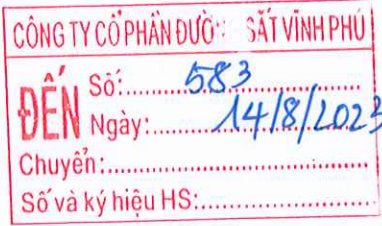 CÔNG TY CỔ PHẦN ĐƯỜ SẮT VĨNH PHÚ
ĐẾN
Số:.....583
Ngày:.....14/8/2023
Chuyển:.....
Số và ký hiệu HS:.....